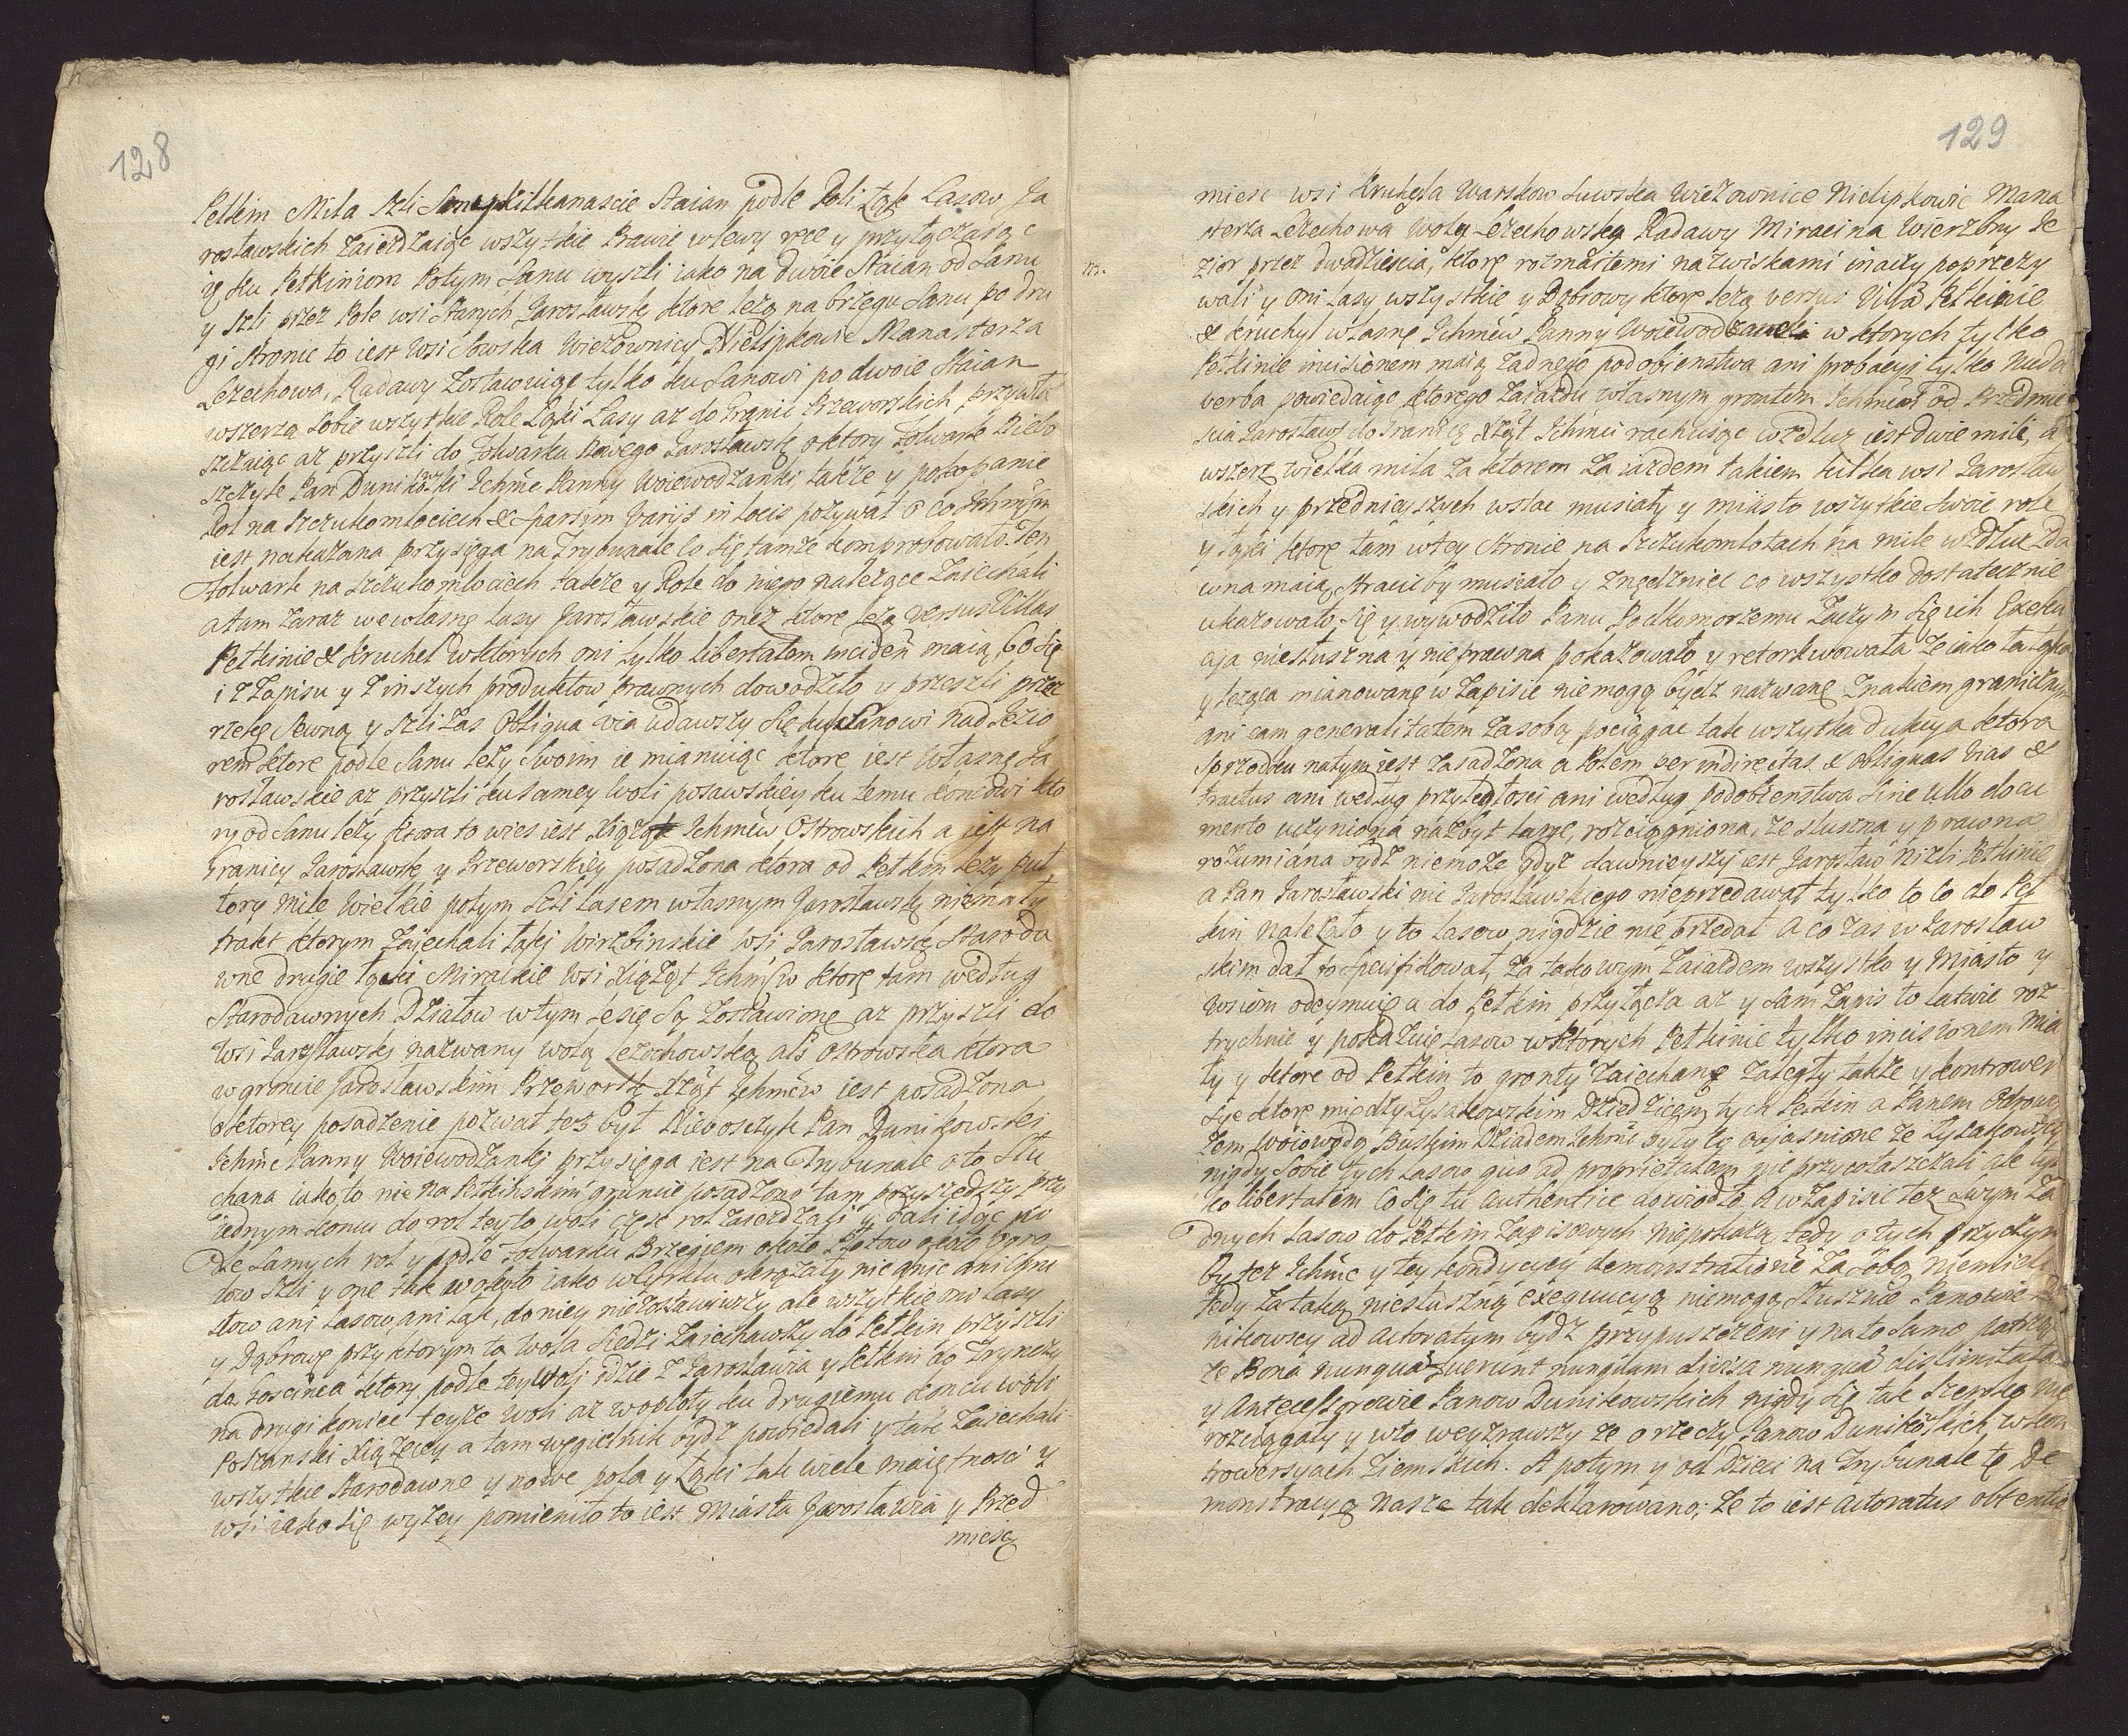 128
Petkin Mila szli Sanem kilkanascie Staian podle Roli Łąk Lasow Ja
rosławskich zaieżdzaiąc wszytkie Prawie w lewy ręce y przyłączaiąc
ię ku Petkiniom Potym Sanu wyszli iako na dwoie Staian od Sanu
y szli przez Pole wsi Starych Jarosławskę ktore leżą na brzegu Sanu po dru
gi stronie to iest Wsi Sowska Wiezownicy Nielipkowic Manasterza
Leżechowa, Radawy Zostawuiąc tylko ku Sanowi po dwoie Staian
wszerzą Sobie wszytkie Role Łąki Lasy aż do Granic Przeworskich, przywła
szczaiąc aż przyszli do Folwarku Nowego Jarosławskę o ktory Folwark Niebo
szczyk Pan Dunikowski Ichmc Panny Woiewodzanki także y pokopanie
Rol na Szczukomłociech & sparsim varijs in locis pozywał o co Ichmcom
iest nakazana przysięga na Trybunale co się tamże komprobowało. Ten
Folwark na Szczukomłociech także y Role do niego należące Zaiechali
a tam zaraz we własne lasy Jarosławskie oneż ktore leżą versus Villas
Petkinie & Kruchel w ktorych oni tylko libertatem inciden maią, bo się
i z Zapisu y z inszych produktow prawnych dowodziło y przeszli przez
rzekę Rewną y szli zas obliqua via udawszy się ku Sanowi nad Jezio
rem ktore podle Sanu leży Swoim ie mianuiąc ktore iest własne Ja
rosławskie aż przyszli ku samey Woli posawskiey ku temu koncowi kto
ry od Sanu leży ktora to wies iest Xiążąt Ichmćw Ostrowskich a iest na
Granicy Jarosławskę y Przeworskiey posadzona ktora od Petkin leży puł
tory mile Wielkie potym szli lasem własnym Jarosławskę niemały
trakt ktorym Zajechali łąki Wirzbinskie wsi Jarosławskę Staroda
wne drugie łąki Mirackie wsi Xiążąt Ichmścw ktore tam według
Starodawnych Działow w tym lesie są zostawione aż przyszli do
wsi Jarosławskj nazwany wolą Leżechowską als Ostrowska ktora
w groncie Jarosławskim Przeworsk Xżąt Ichmćw iest posadzona
o ktorey posadzenie pozwał też był Nieboszczyk Pan Dunikowski
Ichmc Panny Woiewodzankj przysięga iest na Trybunale o to Słu
chana iako to nie na Petkińskim gruncie posadzono tam przyszedszy przy
iednym koncu do rol teyto woli częsc rol zaieżdzali y dali idąc po
dle samych rol y podle Folwarku Brzegiem około
tow szli y onę tak wokoło iako w Cyrklu okrążały nie onie ani Gru
tow ani Lasow, ani Łąk, do niey niezostawiwszy ale wszytkie oni lasy
y Dąbrowę przy ktorym ta Wola siedzi Zaiechawszy do Petkin przyszli
do Goscinca ktory podle teyWolj idzie z Jarosławia y Petkin do Tryncży
na drugi koniec teyże Woli aż w opłoty ku drugiemu koncu woli
Poszanski Xiążęcey a tam węgielnik bydz powiedali y tak Zaiechali
wszytkie Starodawne y nowe pola y Łąki tak wiele maiętnosci y
wsi iako się wyżey pomieniło to iest Miasta Jarosławia y Przed
miescę
129
miesc wsi Kruhela Warsków Suwska Wiezownice Nielipkowic Mana
sterza Leżechowa Wolą Leżechowską Radawy Miracina Wierzbny Je
m.
zior przez dwadziescia, ktorę rozmaitemi nazwiskami inaczy poprzezy
wali y oni lasy wszystkie y Dąbrowy ktore leżą versus Villã Petkinie
& Kruchyl własnę Ichmćw Panny Woiewodzanki w ktorych tylko
Petkinie incisionem maią żadnego podobienstwa ani probacyi tylko nuda
verba powiedaiąc ktorego Zaiazdu własnym grontem Ichmćw od Przedmie
scia Jarosław: do Granicę Xżąt Ichmci rachuiąc wzdłuż iest dwie mili, a
wszerz wielka mila za ktorem Zaiazdem takiem kilka wsi Jarosław
skich y przednieyszych wstac musiały y miasto wszytkie swoie role
y Łąki ktore tam w tey stronie na Szczukomłotach na mile wzdłuż zda
wna maią stracicby musiało y znędzniec co wszystko dostatecznie
ukazowało się y wywodziło Panu Podkomorzemu Zaczym się ich Exeku
cyja niesłuszna y nieprawna pokazowało y retorkwowała że iako ta łąka
y leząca mianowanę w Zapisie niemogę bydz nazwanę Znakiem granicznym
ani eam generalitatem za sobą pociągac tak wszytka dukcya ktora
Sprzodku natym iest zasadzona a Potem per indirectas & obliquas vias &
tractus ani według przyległosci ani według podobienstwa Sine ullo docu
mento uczyniona nazbyt rozciągniona, że słuszna y prawna
rozumiana bydz niemoże gdyż dawnieyszy iest Jarosław niżli Petkinie
a Pan Jarosławski nic Jarosławskiego nieprzedawał tylko to co do Pet
kin należało y to lasow nigdzie nie przedał A co zas w Jarosław
skim dał to specifikował, za takowym Zaiazdem wszystko y Miasto y
wsiom odeymuię a do Petkin przyłącza aż y sam Zapis to łatwie roz
trychnie y pokaże lasow w ktorych Petkinie tylko incisionem mia
ły y ktore od Petkin to gronty zaiechane Zaległy także y kontrower
syje ktore między Łysakowskim Dziedzicem tych Petkin a Panem Odrową
żem Woiewodą Ruskim Dziadem Ichmć były tę objasnione że Łysakowscy
nigdy sobie tych lasow quo ad proprietatem nie przywłaszczali ale tyl
ko libertatem co się tu authentice dowiodło A w Zapisie też swym Ża
dnych Lasow do Petkin Zapisowych niepokażą tedy o tych przyczyn
by też Ichmć y tey kondycyey demonstrationie za sobą niemieli
Tedy za taką niesłuszną exequucyą niemogą słusznie Panowie Du
nikowscy ad actoratum bydz przypuszczeni y na to samo patrząc
że Bona nunquã fuerunt nunquam divisa nunquã dislimitata
y Antecessorowie Panow Dunikowskich nigdy się tak szeroko nie
rozciągały y wto weyzrawszy że o rzeczy Panow Dunikoskich w kon
trowersyach Ziemskich. A potym y od Dzieci na Trybunale tę De
monstracyą Nasze tak deklarowano; że to iest actoratus obtentio